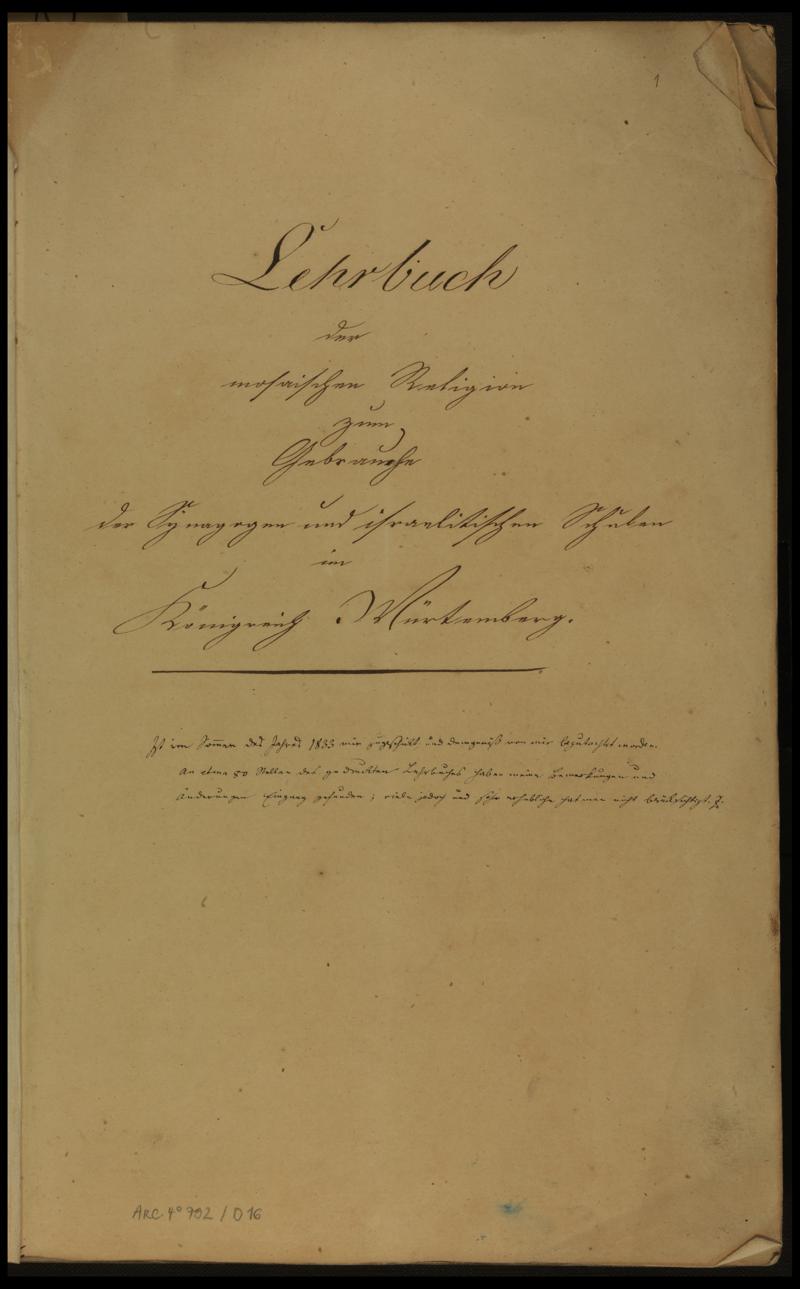 1
Lehrbuch
der
mosaischen Religion
zum
Gebrauche
der Synagogen und israelitischen Schulen
im
Königreich Würtemberg.
Ist im Sommer des Jahres 1833 mir zugeschickt und demgemäß von mir begutachtet worden.
An etwa 50 Stellen des gedruckten Lehrbuches haben meine Bemerkungen und
Änderungen Eingang gefunden; viele jedoch und sehr erhebliche hat man nicht berücksichtigt. Z.
ARC. 4° 792 / D 16